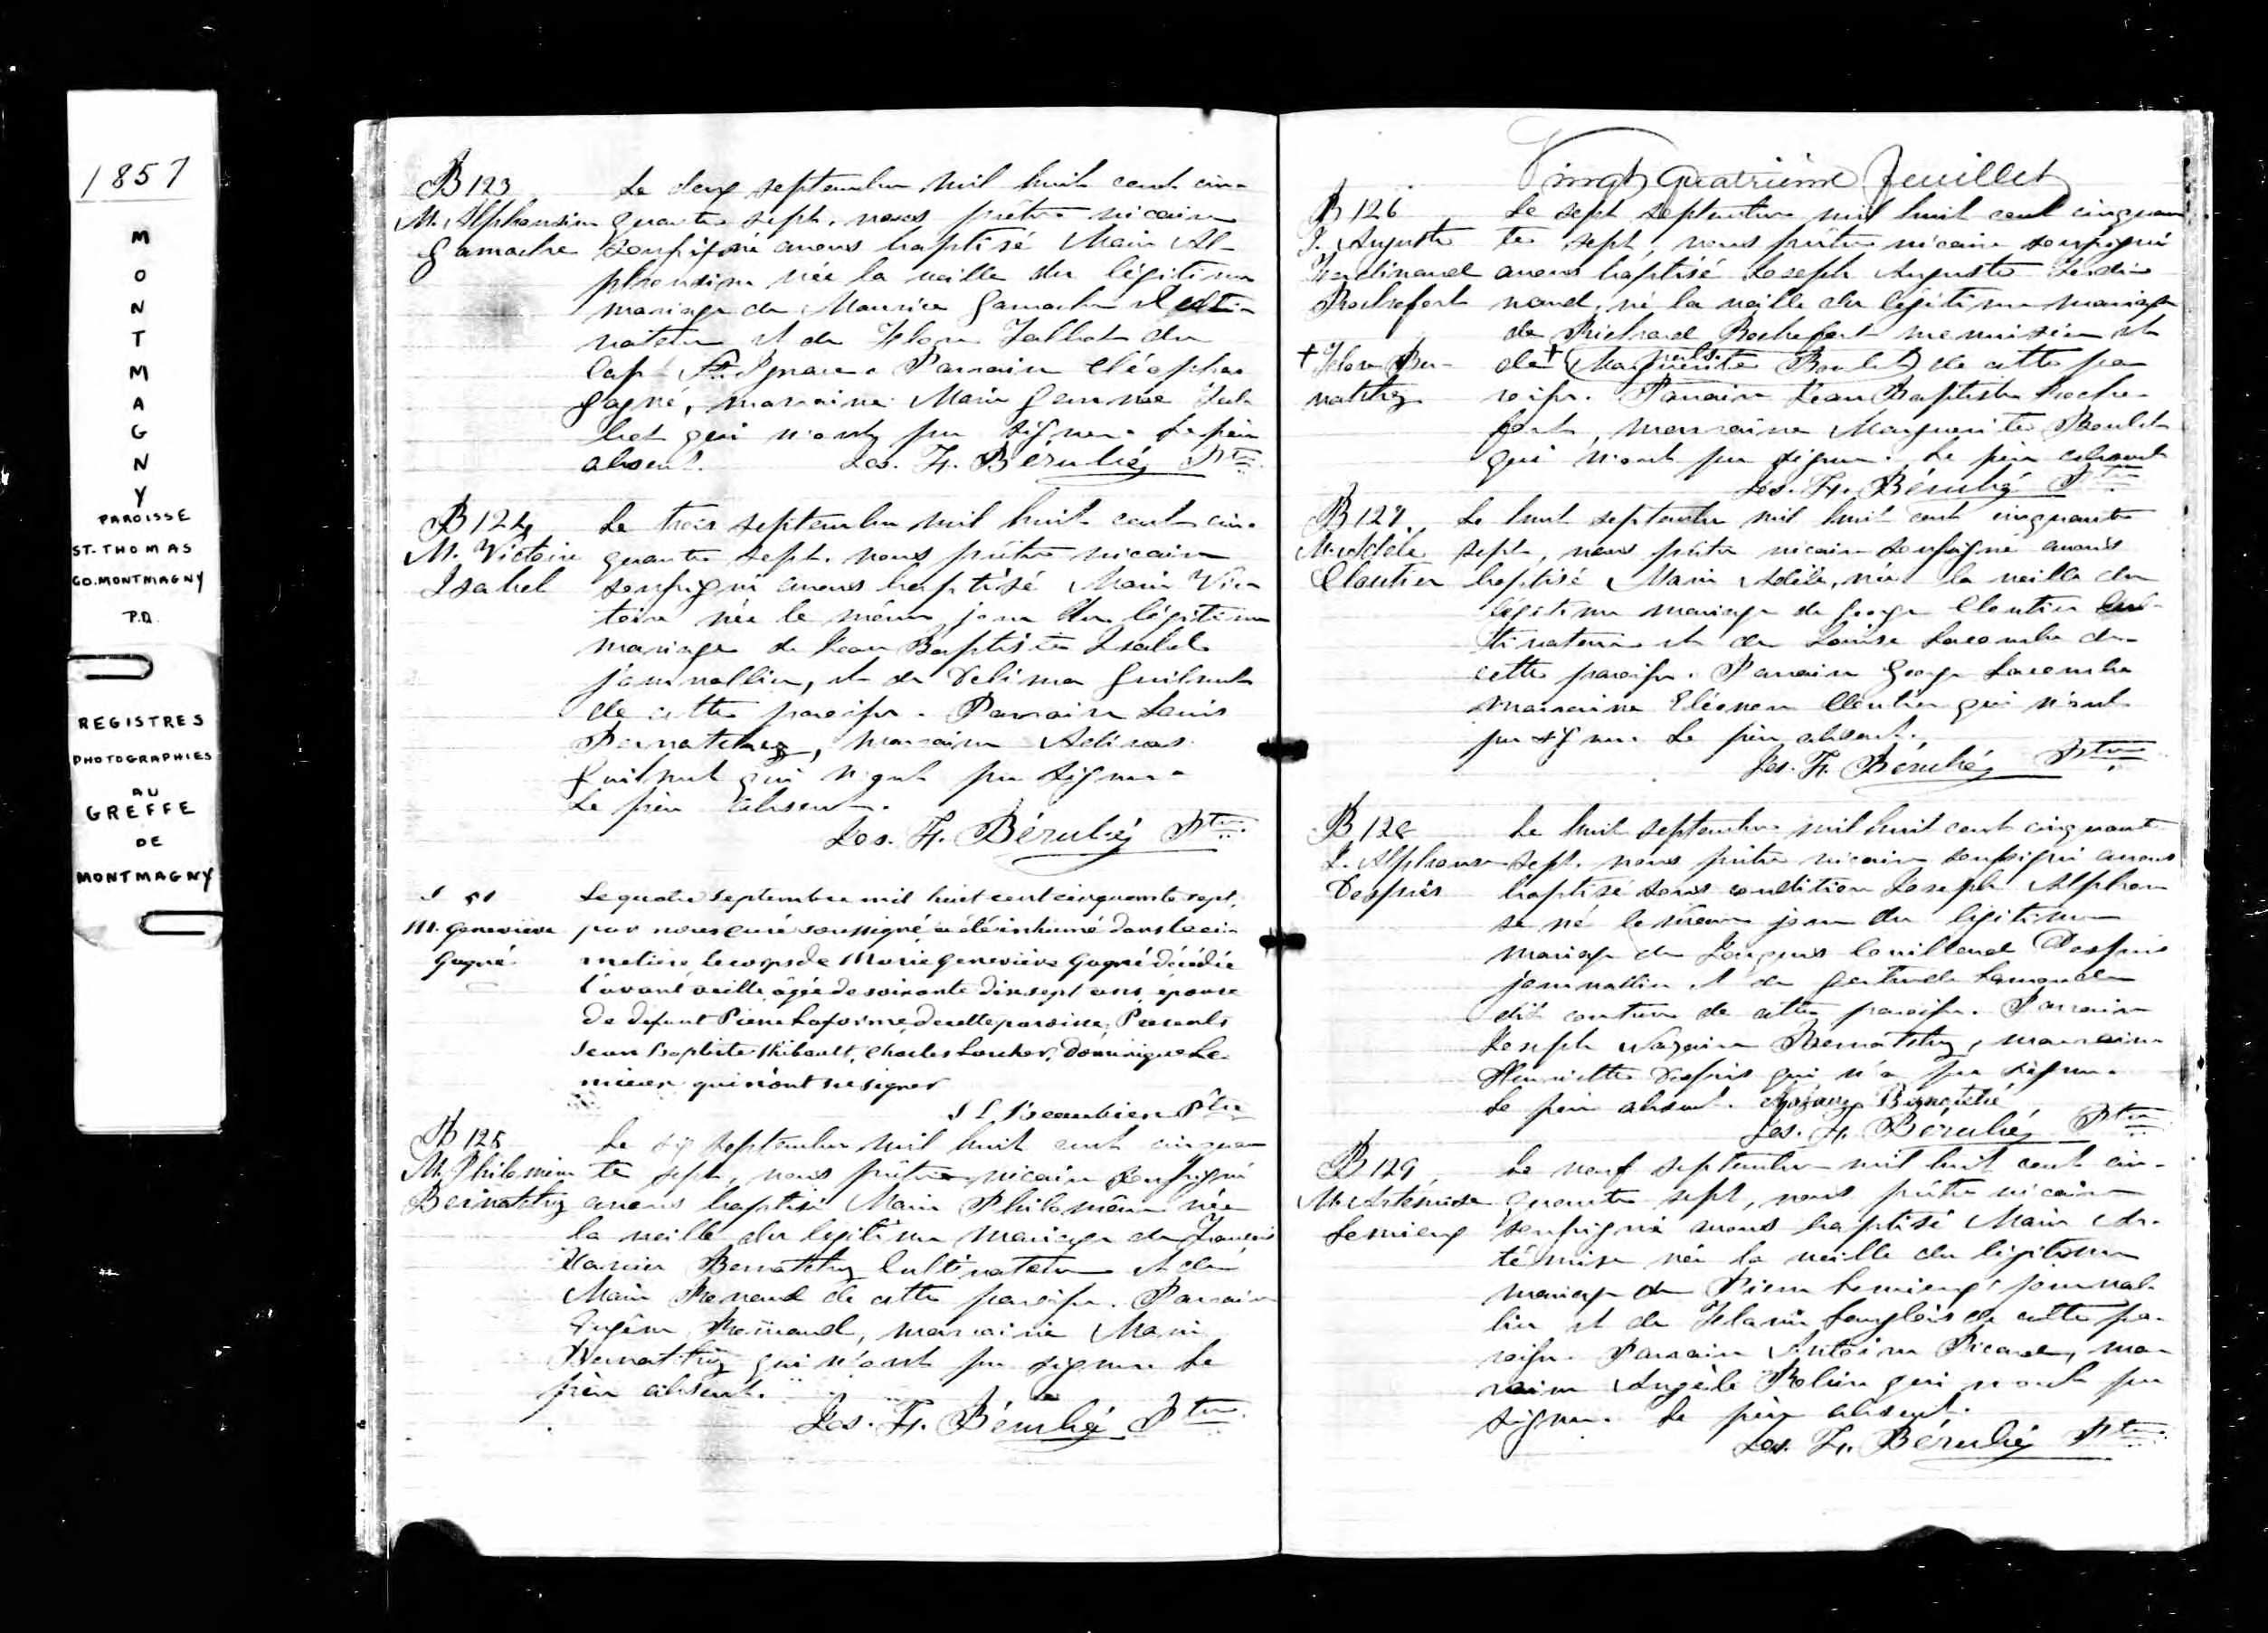 1857
MONTMAGNY
PAROISSE
ST-THOMAS
CO. MONTMAGNY
P.Q.
REGISTRES
PHOTOGRAPHIES
AU
GREFFE
DE
MONTMAGNY
B 123
M. Alphonsine
Gamache
Le deux septembre mil huit cent cin-
quante sept, nous prêtre vicaire
soussigné avons baptisé Marie Al-
phonsine née la veille du légitime
mariage de Maurice Gamache culti-
vateur et de Talbot du
Cap St. Ignace. Parrain Cléophas
Gagné, marraine Marie Tal-
bot qui n'ont pu signer. Le père
absent. Jos. F. Bérubé Ptre
B 124
M. Victoire
Isabel
Le trois septembre mil huit cent cin-
quante sept, nous prêtre vicaire
soussigné avons baptisé Marie Vic-
toire née le même jour du légitime
mariage de Jean Baptiste Isabel
journallier, et de Délima Guilmet
de cette paroisse. Parrain Louis
Bernatchez, marraine
Guilmet qui n'ont pu signer.
Le père absent.
Jos. F. Bérubé Ptre
S 51
M. Geneviève
Gagné
Le quatre septembre mil huit cent cinquante sept,
par nous curé soussigné a été inhumé dans le ci-
metière le corps de Marie Geneviève Gagné décédée
l'avant veille, âgée de soixante dix sept ans, epouse
de defunt Pierre Laforme, de cette paroisse. Présents
Jean Baptiste Thibault, Charles Dominique Le-
mieux qui n'ont su signer
J L Beaubien Ptre
B 125
M. Philomène
Bernatchez
Le six septembre mil huit cent cinquan-
te sept, nous prêtre vicaire soussigné
avons baptisé Marie Philomène née
la veille du légitime mariage de François
Xavier Bernatchez cultivateur et de
Marie Renaud de cette paroisse. Parrain
Eugène Renaud, marraine Marie
Bernatchez qui n'ont pu signer. Le
père absent.
Jos. F. Bérubé Ptre
Vingt quatrième feuillet
B 126
J. Auguste
Ferdinand
Rochefort
Le sept septembre mil huit cent cinquan-
te sept, nous prêtre vicaire soussigné
avons baptisé Joseph Auguste Ferdi-
nand, né la veille du légitime mariage
de Richard Rochefort menuisier et
+ Ber-
natchez
de + (Marguerite Boulet) de cette pa-
roisse. Parrain Jean Baptiste Roche-
fort, marraine Marguerite Boulet
qui n'ont pu signer. Le père absent
Jos. F. Bérubé Ptre
B 127.
M. Adèle
Cloutier
Le huit septembre mil huit cent cinquante
sept, nous prêtre vicaire soussigné avons
baptisé Marie Adèle, née la veille du
légitime mariage de George Cloutier cul-
tivateur et de Louise Lacombe de
cette paroisse. Parrain George Lacombe
marraine Eléonore Cloutier qui n'ont
pu signer. Le père absent.
Jos. F. Bérubé Ptre
B 128
J. Alphonse
Després
Le huit septembre mil huit cent cinquante
sept, nous prêtre vicaire soussigné avons
baptisé sous condition Joseph Alphon-
se né le même jour du légitime
mariage de Jacques Couillard Després
journallier et de Gertrude
dit couture de cette paroisse. Parrain
Joseph Nazaire Bernatchez, marraine
Henriette Després qui n'a pu signer.
Le père absent.
Jos. F. Bérubé Ptre
B 129
M. Artémise
Lemieux
Le neuf septembre mil huit cent cin-
quante sept, nous prêtre vicaire
soussigné avons baptisé Marie Ar-
témise née la veille du légitime
mariage de Pierre Lemieux journal-
lier et de Langlois de cette pa-
roisse. Parrain Antoine Picard, mar-
raine Angèle Robin qui n'ont pu
signer. Le père absent.
Jos. F. Bérubé Ptre